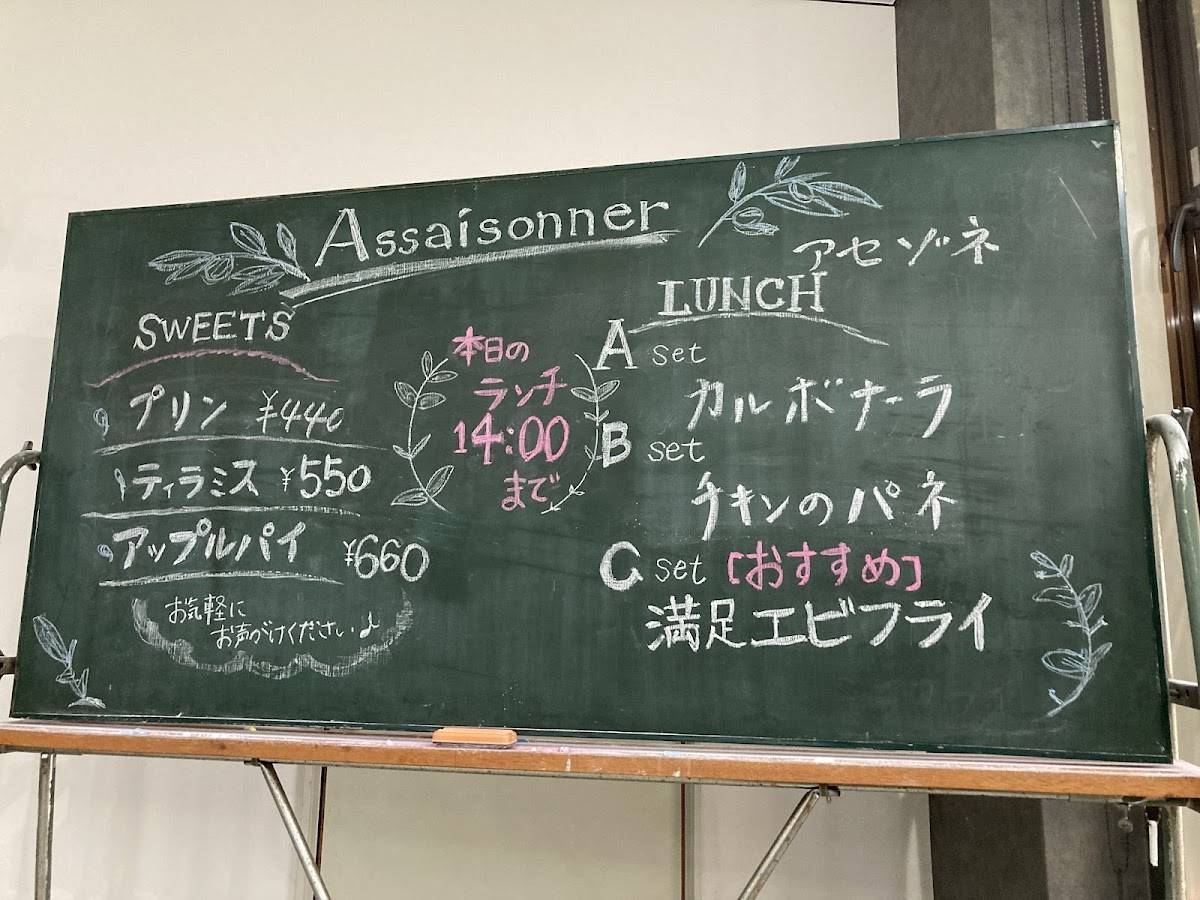 Assaisonner
アセゾネ
SWEETS
プリン ¥440
ティラミス ¥550
アップルパイ ¥660
お気軽に
お声がけください♪
本日の
ランチ
14:00
まで
LUNCH
A set
カルボナーラ
B set
チキンのパネ
C set [おすすめ]
満足エビフライ